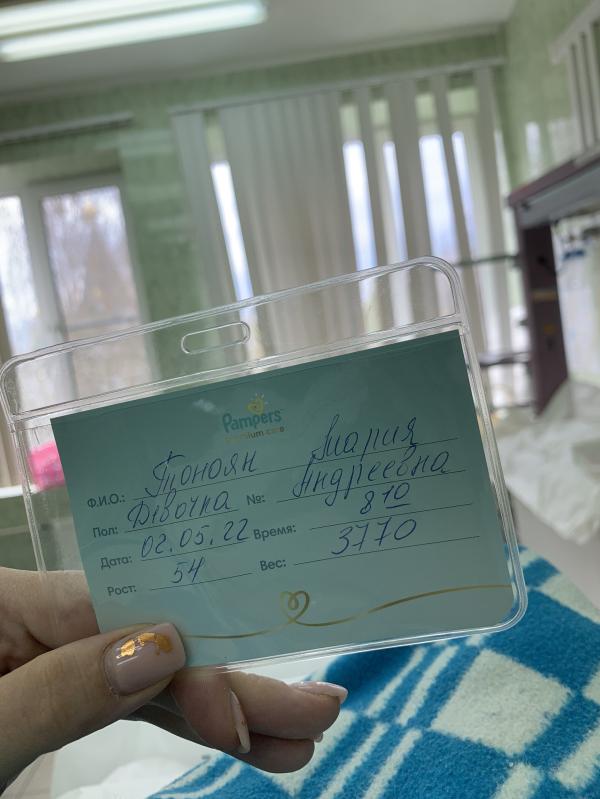 Pampers
premium care
Ф.И.О.: Тоноян Мария
Андреевна
Пол: Девочка №:
Дата: 02.05.22 Время: 8 10
Рост: 54 Вес: 3770